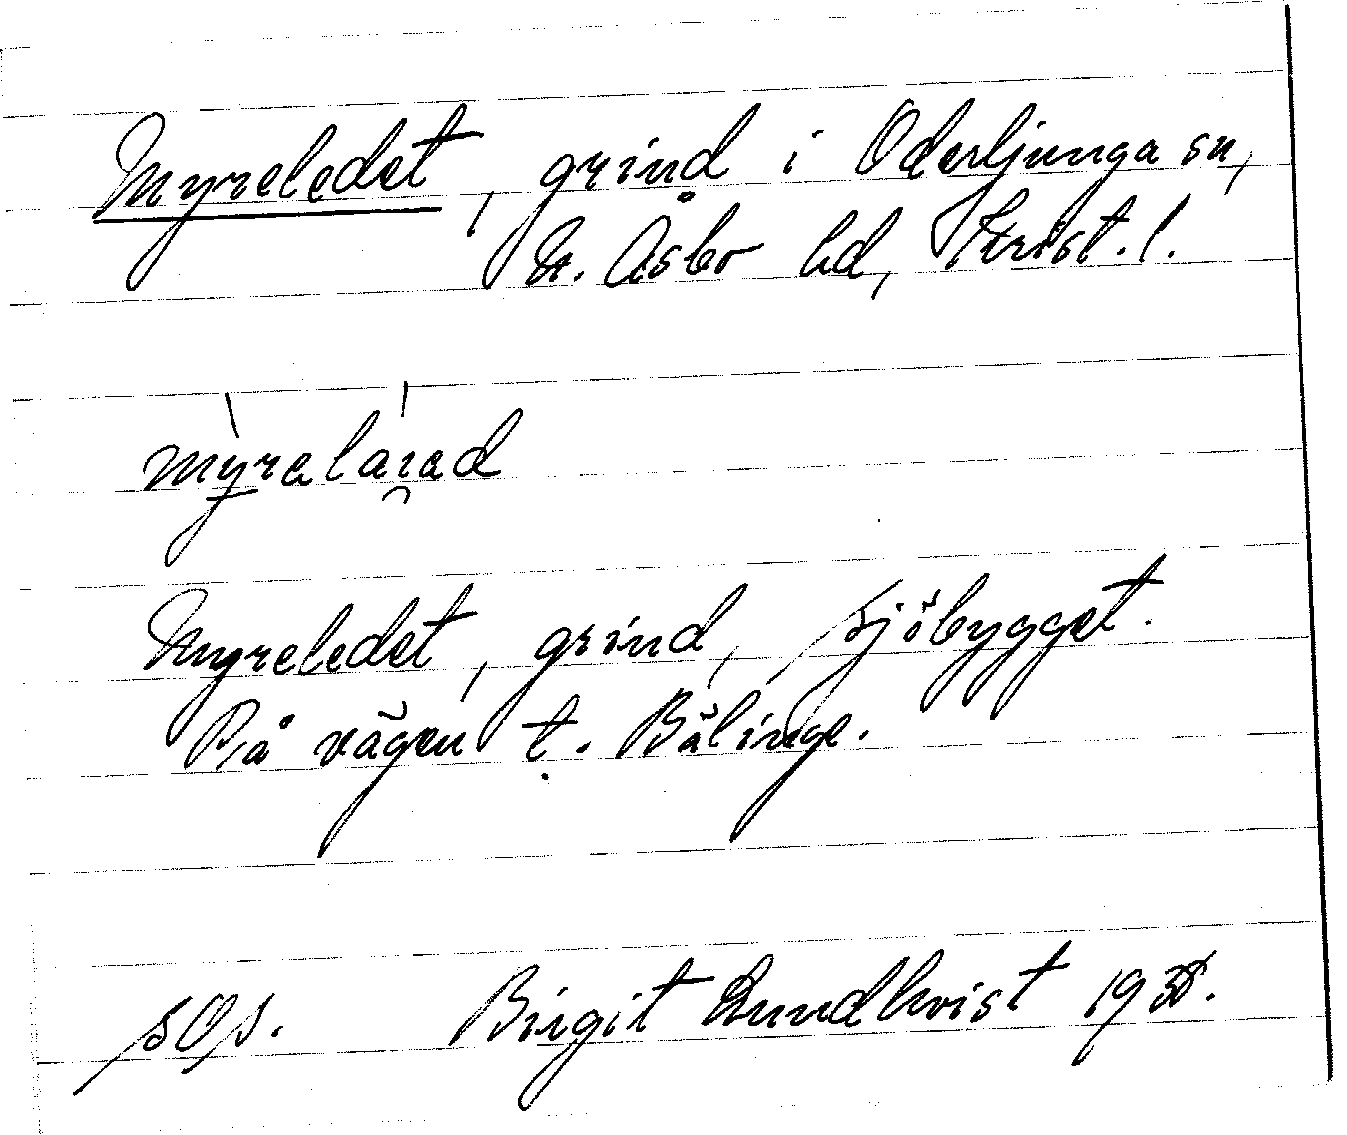 Myreledet, grind i Oderljunga sn,
N. Åsbo hd, Krist. l.
myrelaıed
Myreledet, grind, Sjöbygget.
På vägen t. Bälinge.
SOS. Birgit Lundkvist